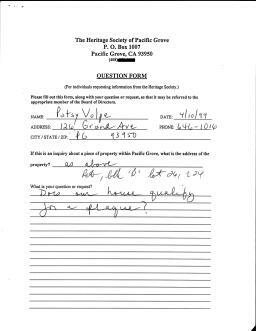 The Heritage Society of Pacific Grove
P. O. Box 1007
Pacific Grove, CA 93950
QUESTION FORM
(For individuals requesting information from the Heritage Society.)
Please fill out this form, along with your question or request, so that it may be referred to the
appropriate member of the Board of Directors.
NAME: Patsy Volpe DATE: 4/10/99
ADDRESS: 126 Grand Ave PHONE: 646-1016
CITY / STATE / ZIP: PG 93950
If this is an inquiry about a piece of property within Pacific Grove, what is the address of the
property? as above
blk "D" lot 26, 24
What is your question or request?
Does our house qualify
for a plaque?